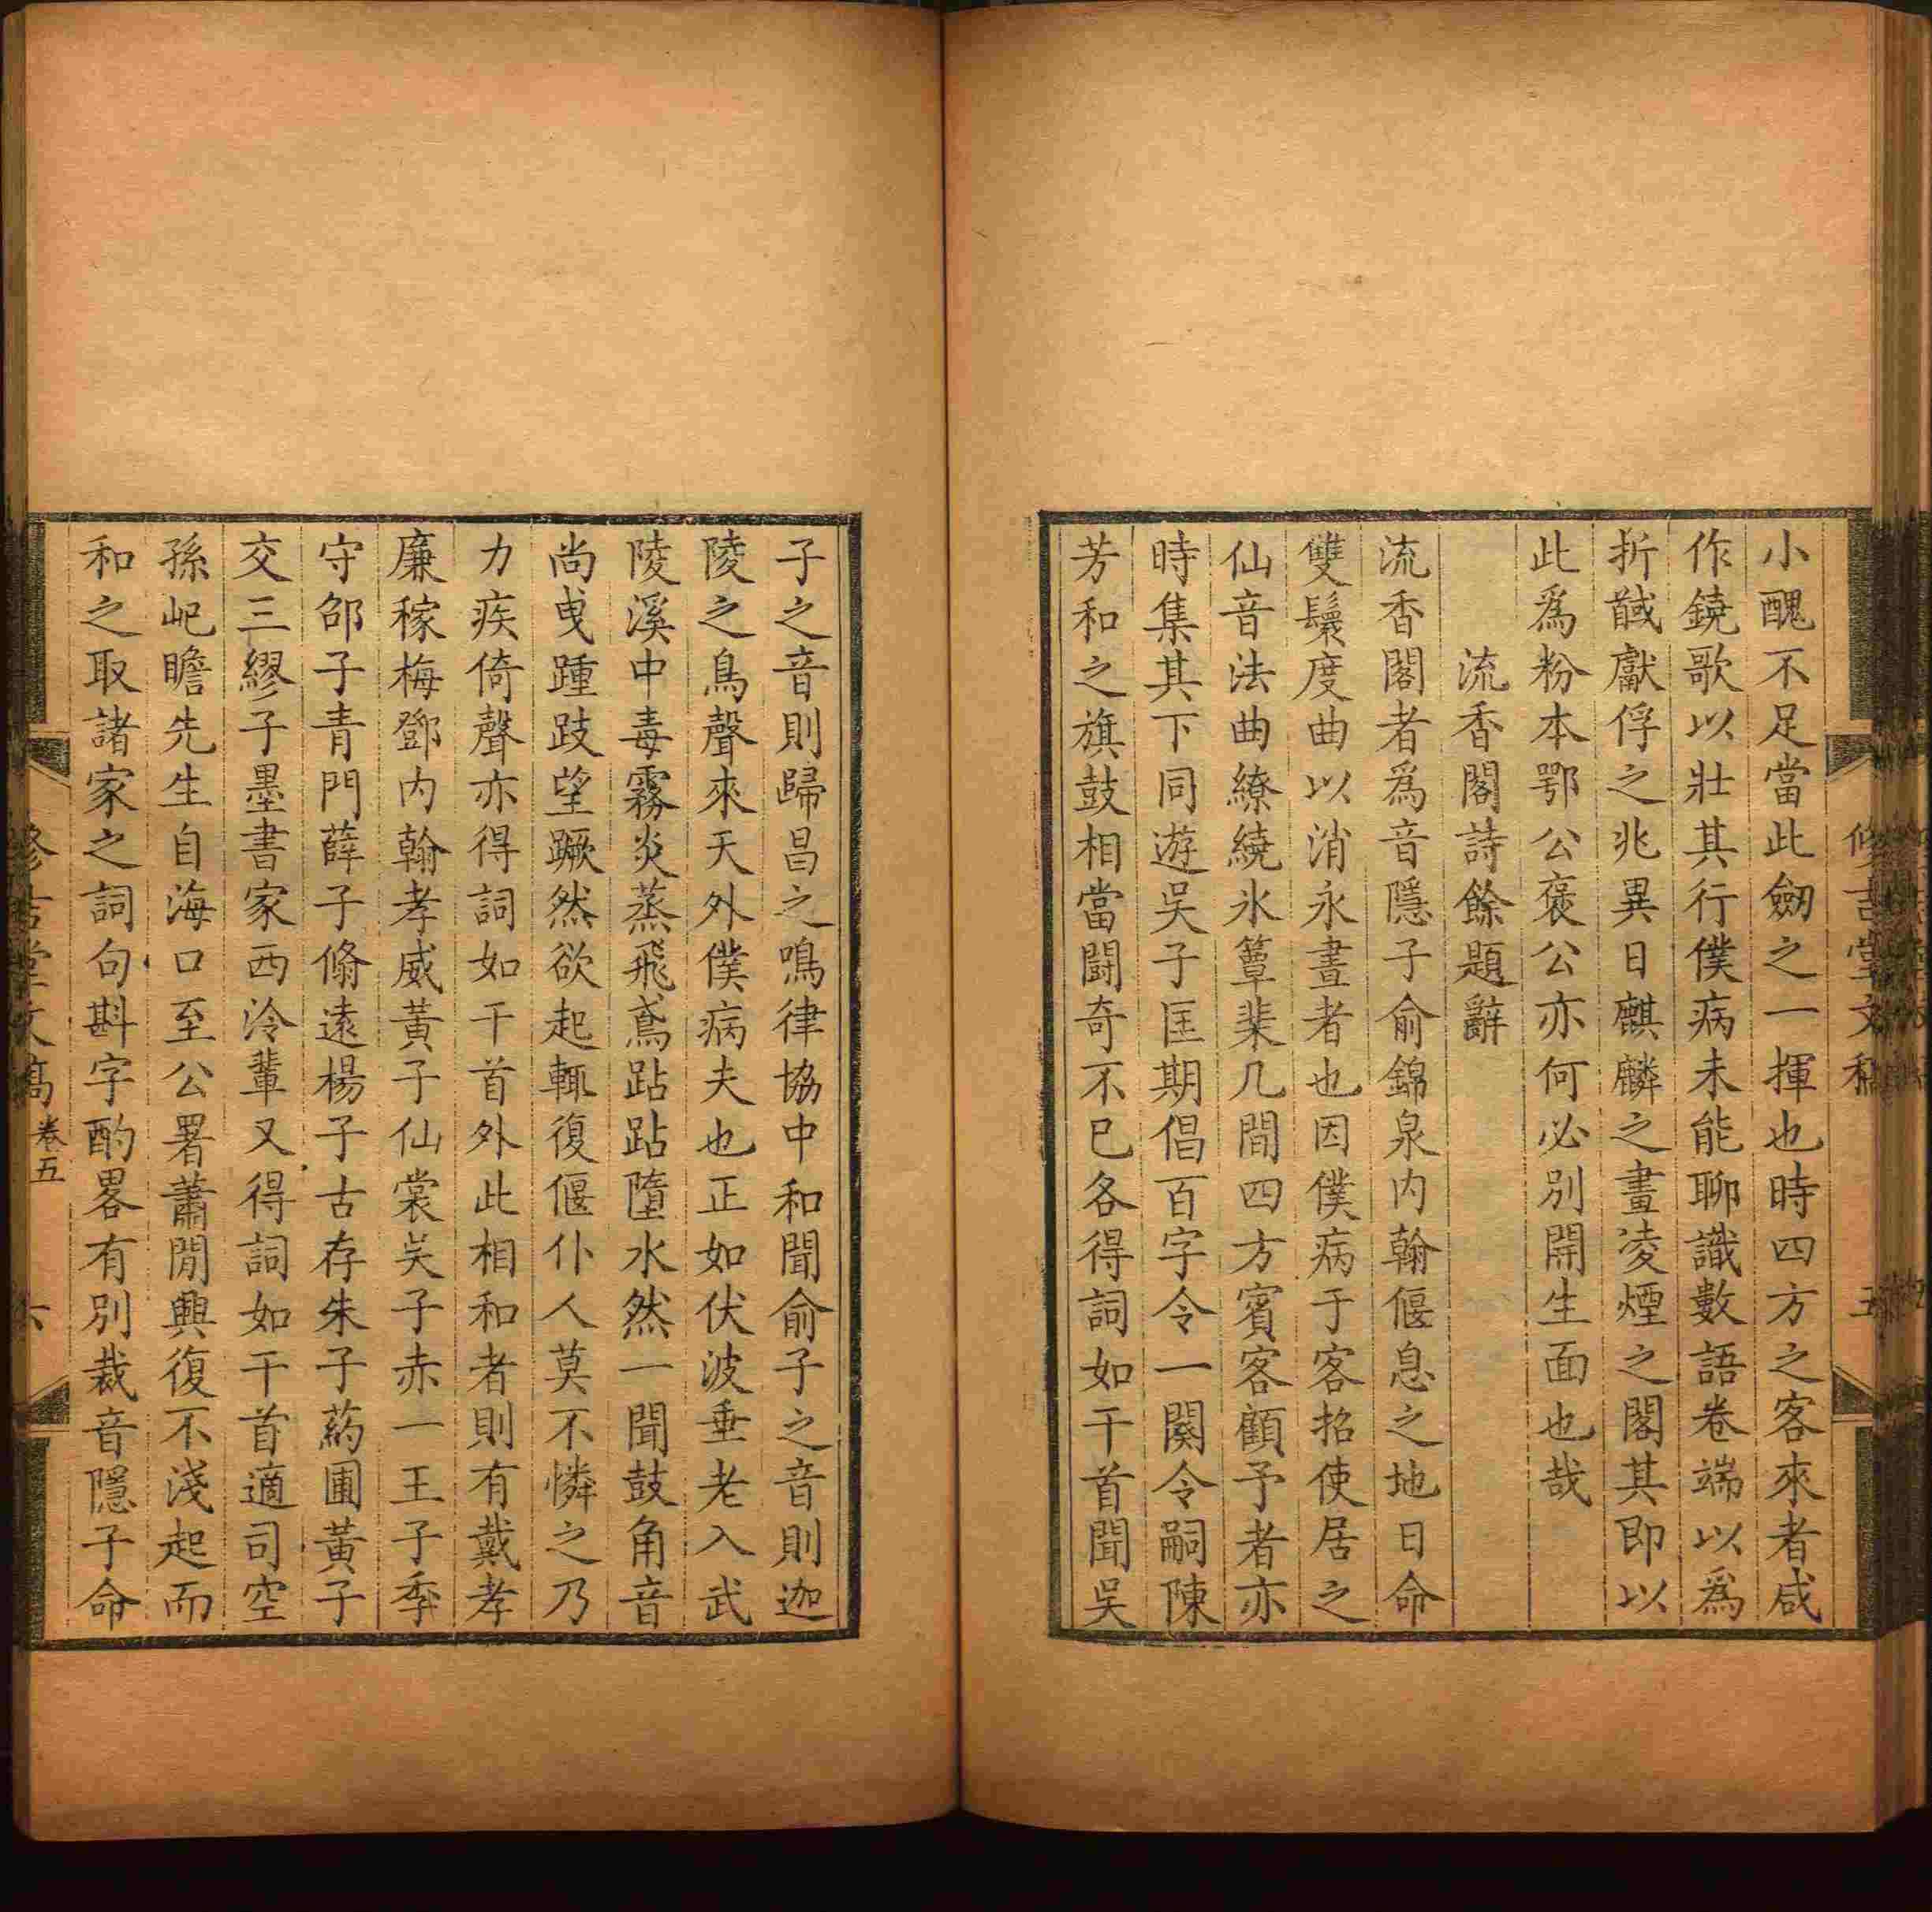 小醜不足當此劒之一揮也時四方之客來者咸
作鐃歌以壯其行僕病未能聊識數語卷端以爲
折馘獻俘之兆異日麒麟之畫凌煙之閣其即以
此爲粉本鄂公褒公亦何必別開生面也哉
流香閣詩餘題辭
流香閣者爲音隱子俞錦泉内翰偃息之地日命
雙鬟度曲以消永晝者也因僕病于客招使居之
仙音法曲繚繞氷簟棐几間四方賓客顧予者亦
時集其下同遊吴子匡期倡百字令一闋令嗣陳
芳和之旗鼓相當鬪奇不已各得詞如干首聞吴
子之音則歸昌之鳴律協中和聞俞子之音則迦
陵之鳥聲來天外僕病夫也正如伏波垂老入武
陵溪中毒霧炎蒸飛鳶跕跕墮水然一聞鼓角音
尚曳踵跂望蹶然欲起輒復偃仆人莫不憐之乃
力疾倚聲亦得詞如干首外此相和者則有戴孝
廉稼梅鄧内翰孝威黃子仙裳吴子赤一王子季
守邵子青門薛子脩遠楊子古存朱子葯圃黃子
交三繆子墨書家西泠輩又得詞如干首適司空
孫屺瞻先生自海口至公署蕭閒興復不淺起而
和之取諸家之詞句斟字酌畧有別裁音隱子命
堂文
卷五
六